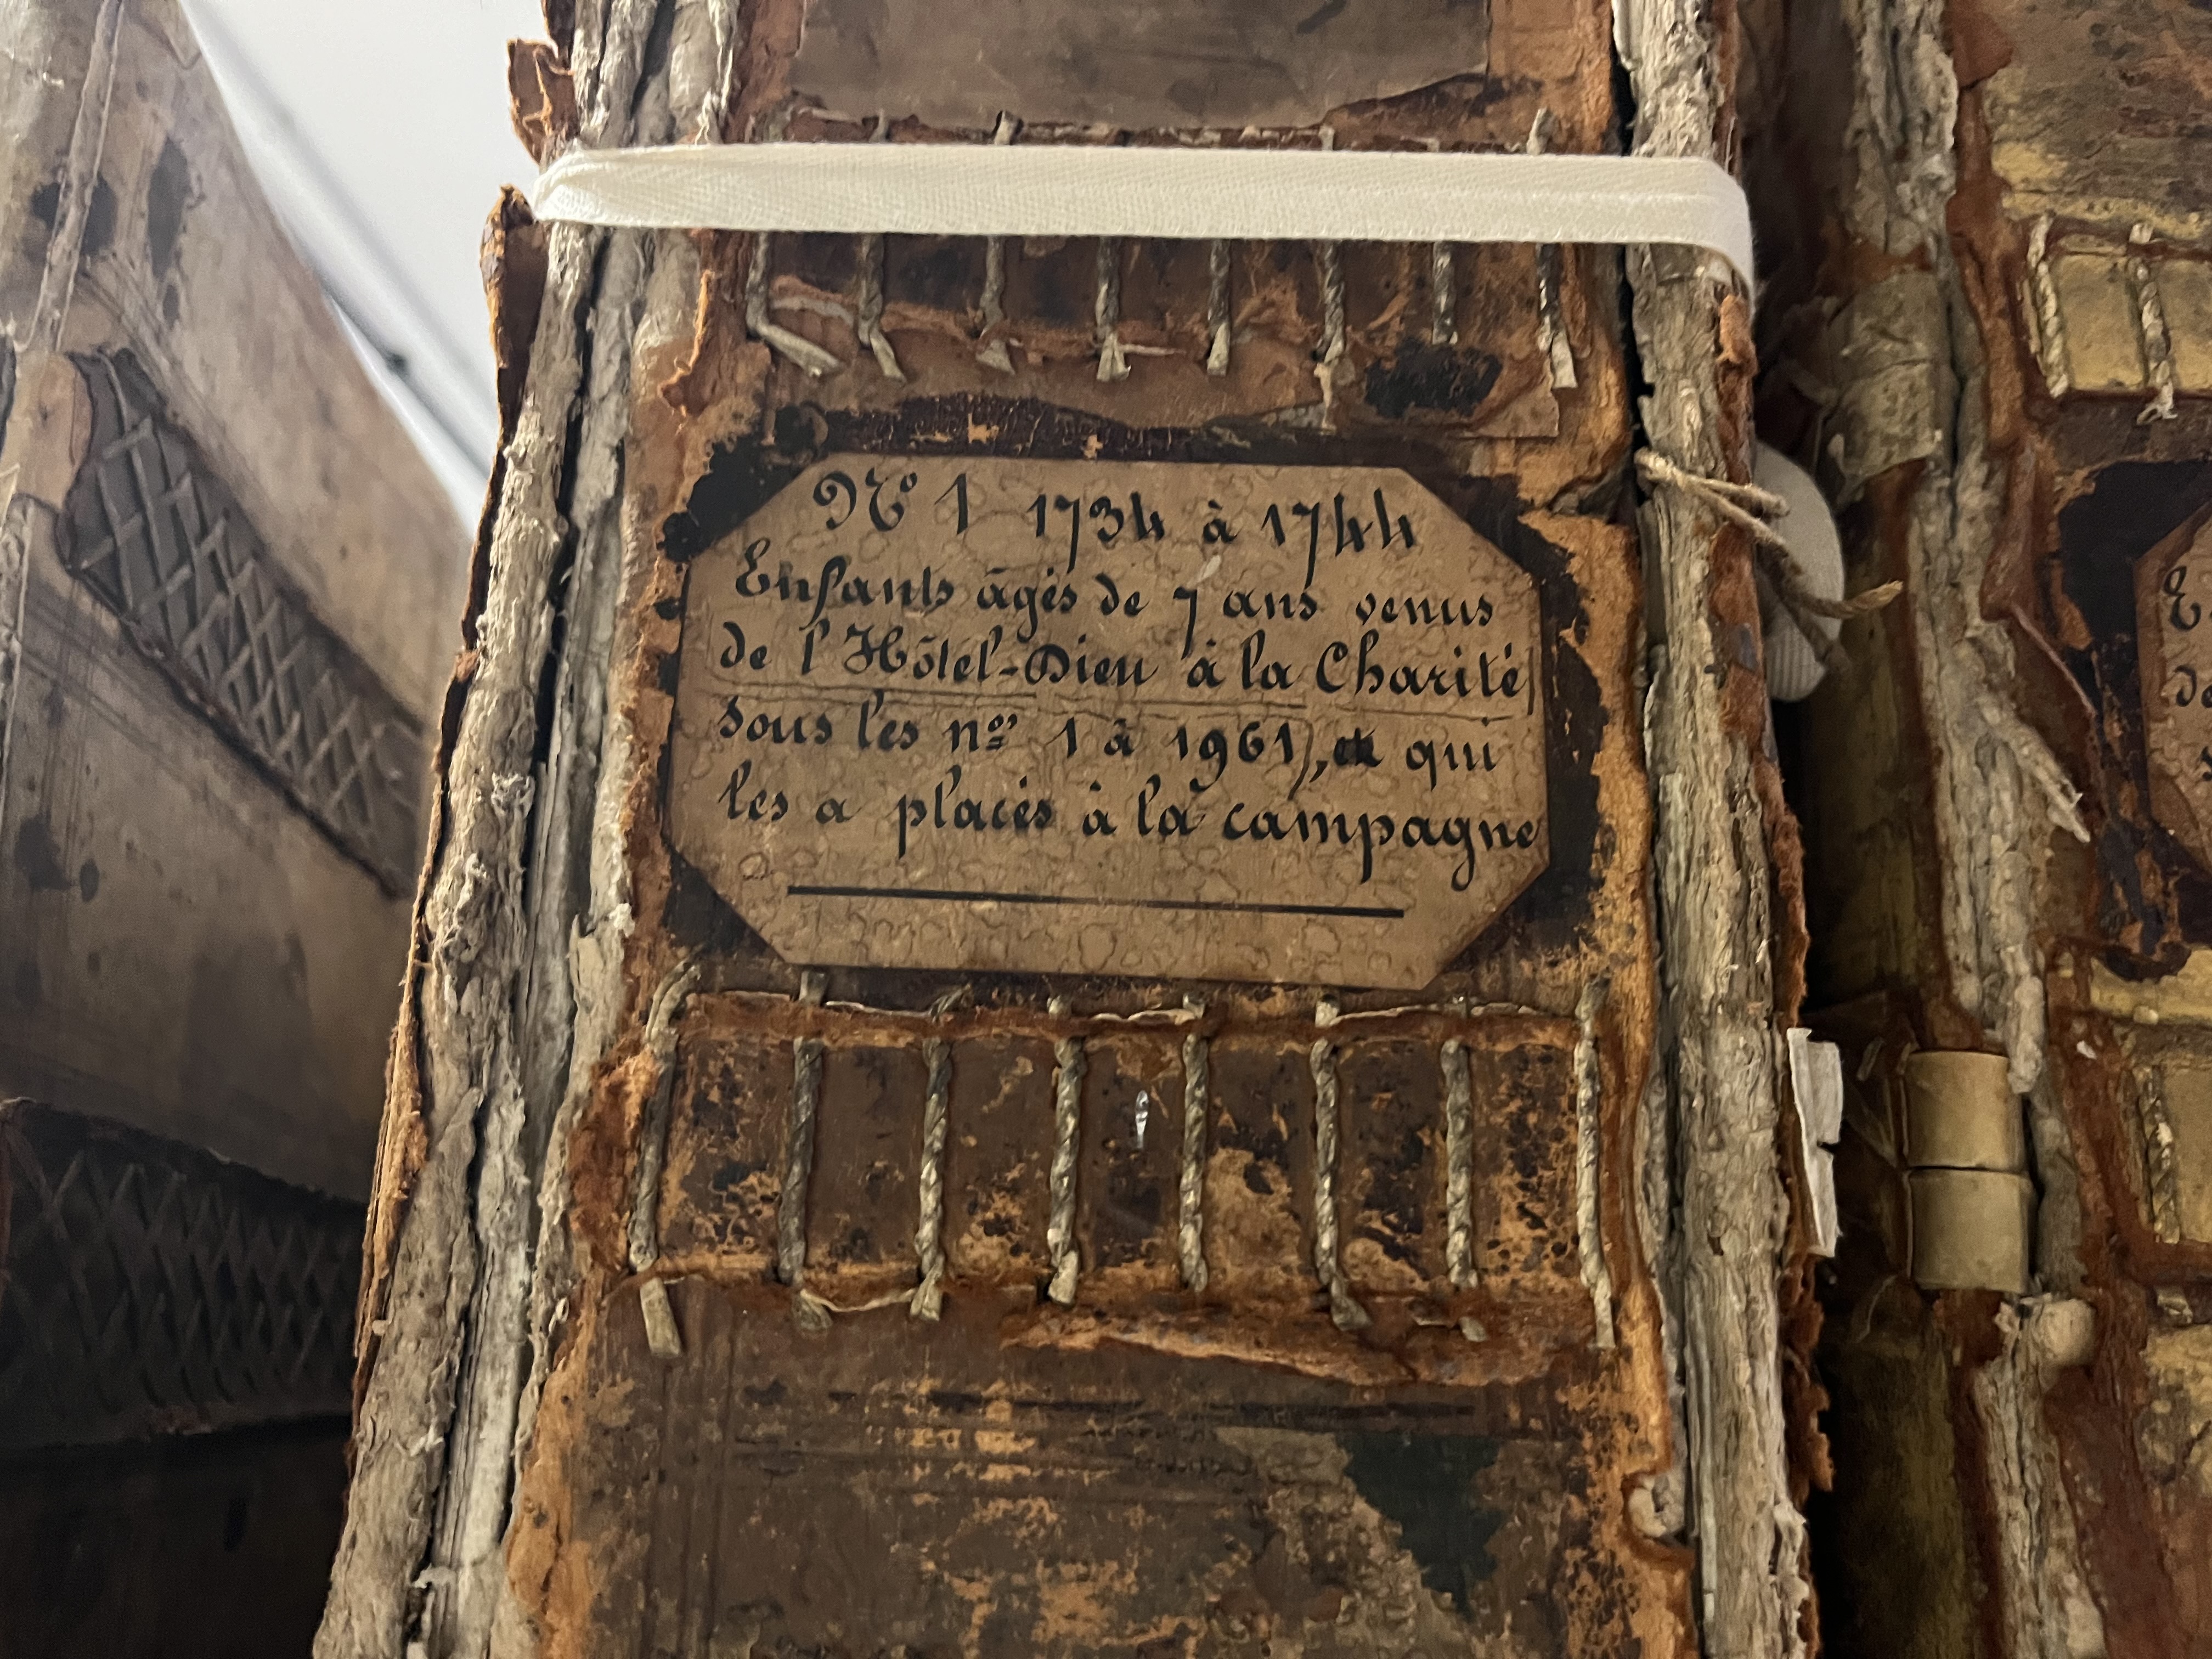 No 1 1734 à 1744
Enfants âgés de 7 ans venus
de l'Hôtel-Dieu à la Charité
sous les nos 1 à 1961), et qui
les a placés à la campagne